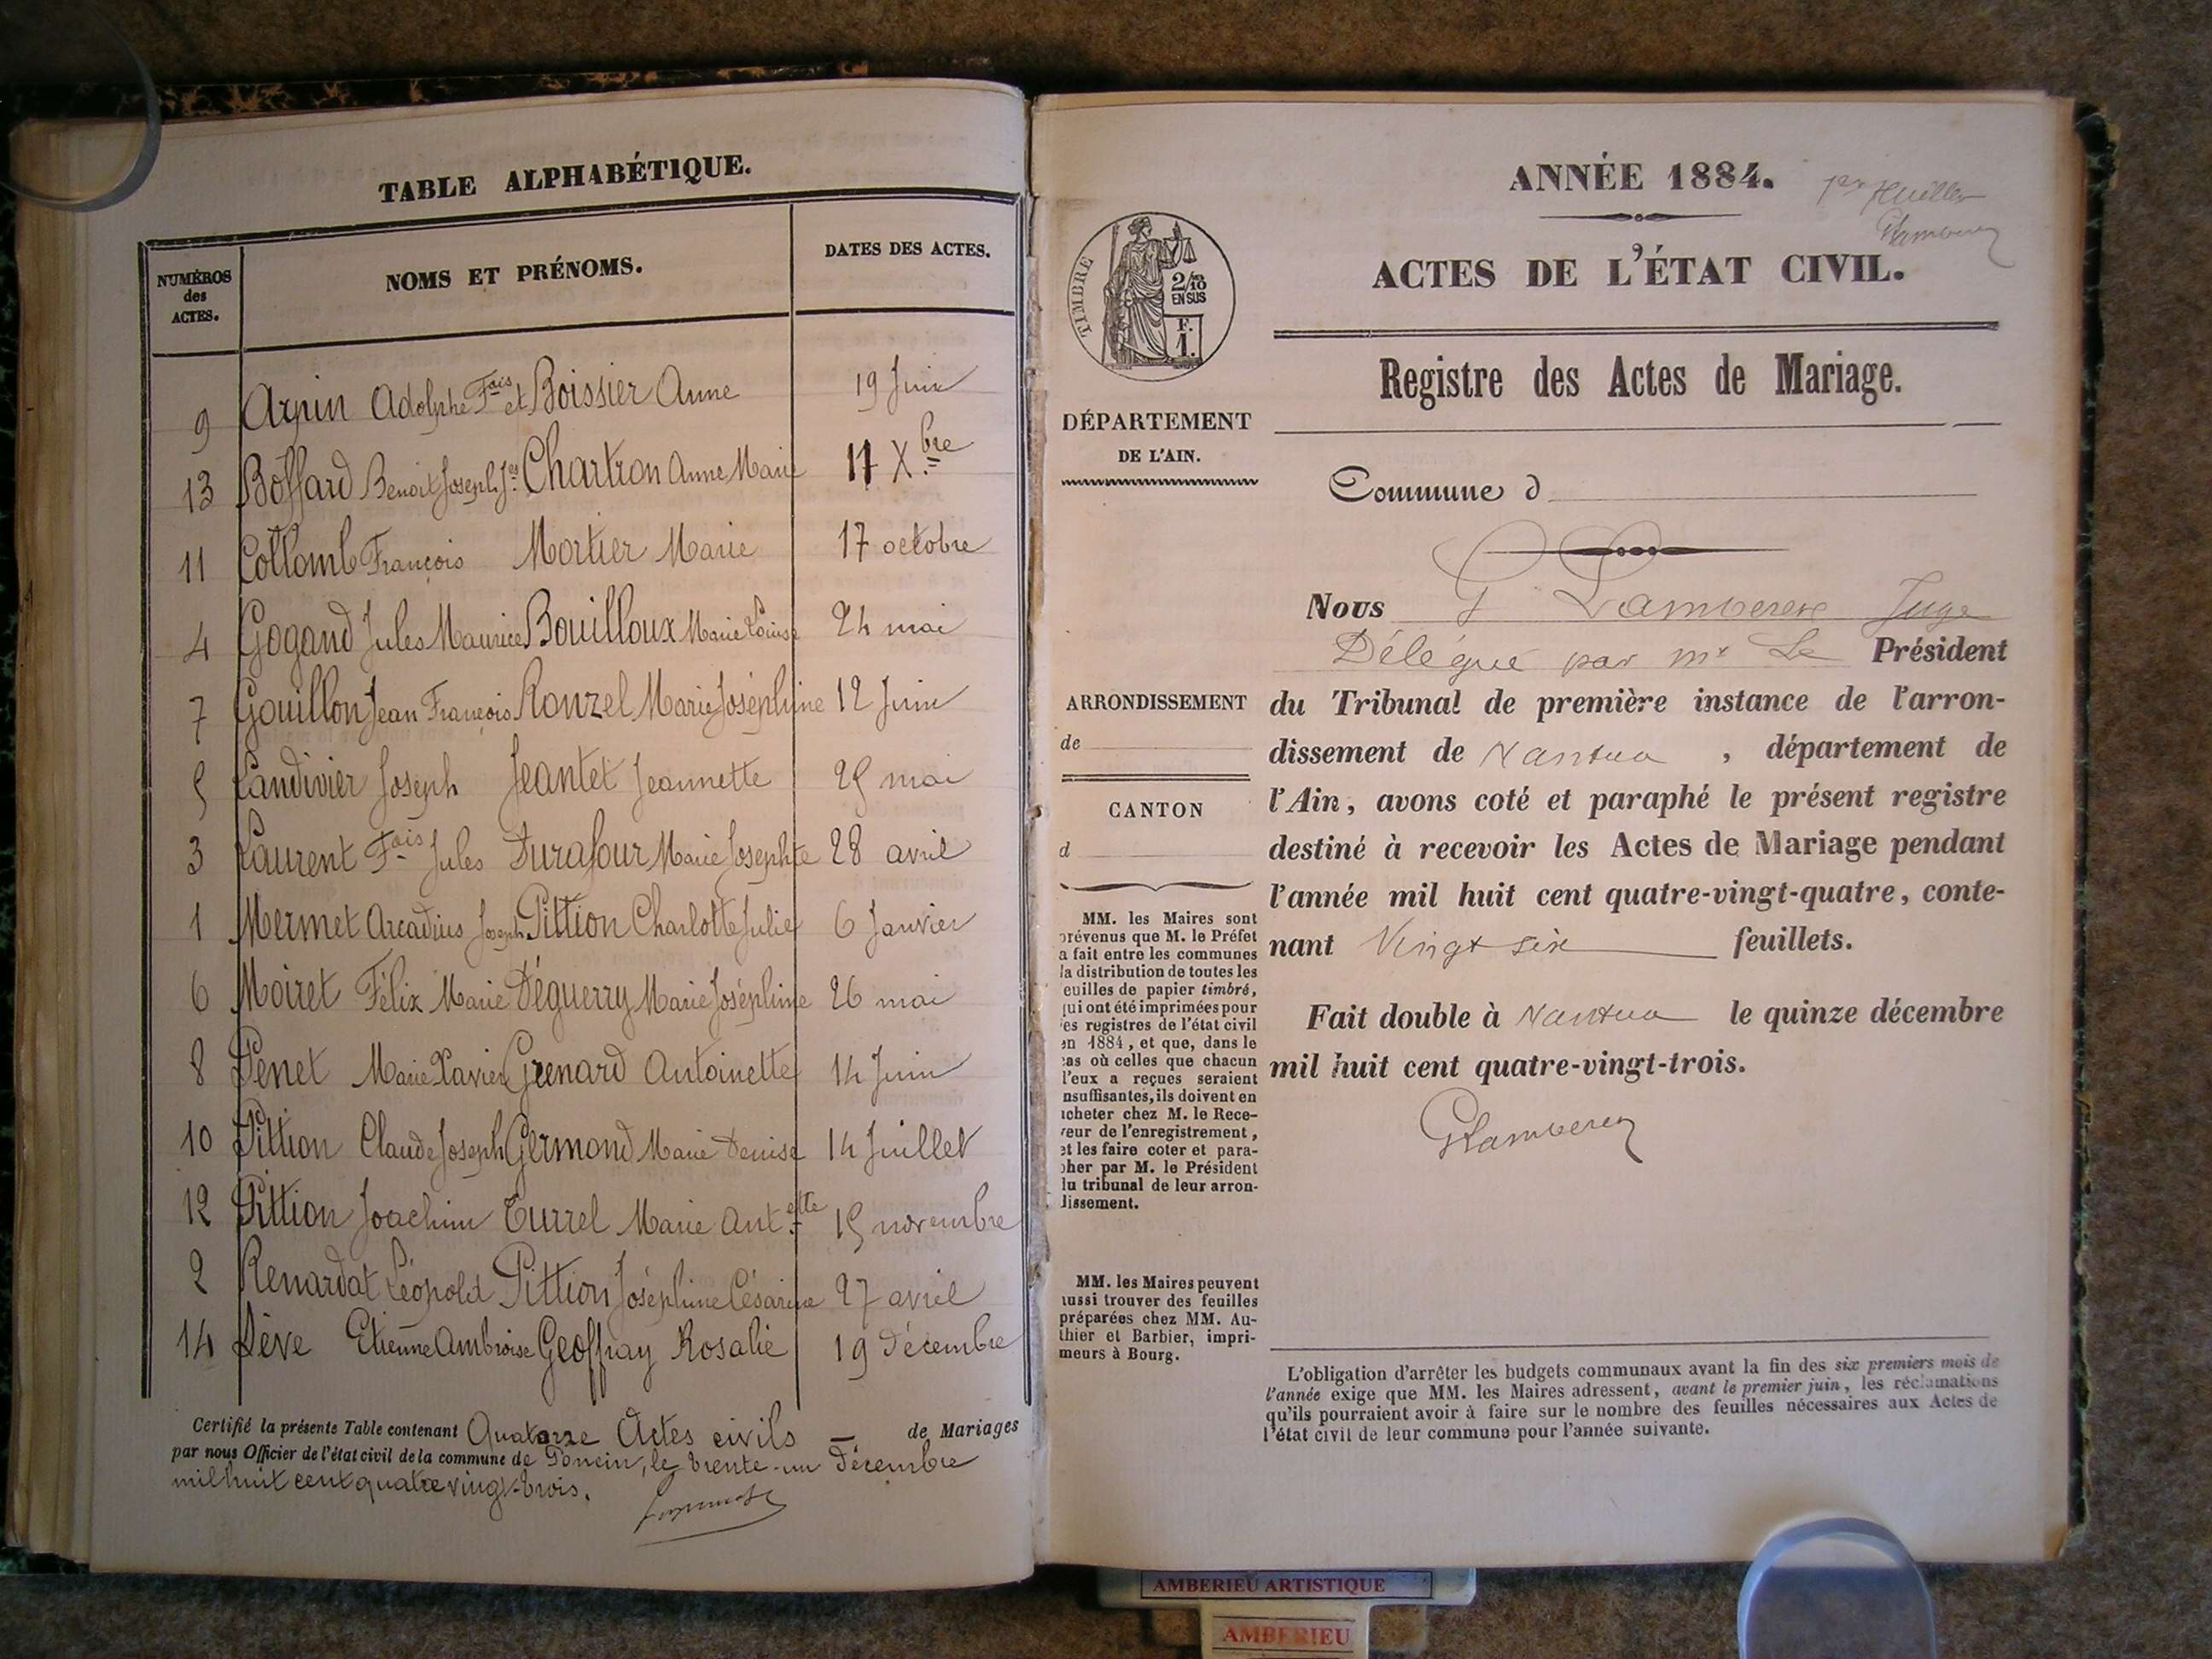 TABLE ALPHABÉTIQUE.
NUMÉROS
des
ACTES.
NOMS ET PRÉNOMS.
DATES DES ACTES.
9 Arpin Adolphe Fois et Boissier Anne 19 Juin
13 Boffard Benoit Joseph Chartron Anne Marie 11 Xbre
11 Collomb François Mortier Marie 17 octobre
4 Gogand Jules Maurice Bouilloux Marie Louise 24 mai
7 Gouillon Jean François Ronzel Marie Joséphine 12 Juin
5 Landivier Joseph Jeantet Jeannette 25 mai
3 Laurent Fois Jules Durafour Marie Josephte 28 avril
1 Mermet Arcadius Joseph Pittion Charlotte Julie 6 Janvier
6 Moiret Félix Marie Déguerry Marie Joséphine 26 mai
8 Penet Marie Xavier Grenard Antoinette 14 Juin
10 Pittion Claude Joseph Germond Marie Denise 14 Juillet
12 Pittion Joachim Turrel Marie Antette 15 novembre
2 Renardat Léopold Pittion Joséphine Césarine 27 avril
14 Sève Etienne Ambroise Geoffray Rosalie 19 Décembre
Certifié la présente Table contenant Quatorze Actes civils — de Mariages
par nous Officier de l'état civil de la commune de Poncin, le trente-un Décembre
mil huit cent quatre vingt-trois.
ANNÉE 1884.
1er feuillet
ACTES DE L'ÉTAT CIVIL.
TIMBRE
2/10
EN SUS
F.
1.
Registre des Actes de Mariage.
DÉPARTEMENT
DE L'AIN.
Commune d
Nous G Lamberen Juge
Délégué par mr Le Président
ARRONDISSEMENT
de
CANTON
d
du Tribunal de première instance de l'arron-
dissement de Nantua , département de
l'Ain, avons coté et paraphé le présent registre
destiné à recevoir les Actes de Mariage pendant
l'année mil huit cent quatre-vingt-quatre, conte-
nant Vingt six feuillets.
Fait double à Nantua le quinze décembre
mil huit cent quatre-vingt-trois.
GLamberen
MM. les Maires sont
prévenus que M. le Préfet
a fait entre les communes
la distribution de toutes les
euilles de papier timbré,
qui ont été imprimées pour
es registres de l'état civil
en 1884, et que, dans le
cas où celles que chacun
l'eux a reçues seraient
nsuffisantes, ils doivent en
acheter chez M. le Rece-
veur de l'enregistrement,
et les faire coter et para-
pher par M. le Président
du tribunal de leur arron-
dissement.
MM. les Maires peuvent
aussi trouver des feuilles
préparées chez MM. Au-
thier et Barbier, impri-
meurs à Bourg.
L'obligation d'arrêter les budgets communaux avant la fin des six premiers mois de
l'année exige que MM. les Maires adressent, avant le premier juin, les réclamations
qu'ils pourraient avoir à faire sur le nombre des feuilles nécessaires aux Actes de
l'état civil de leur commune pour l'année suivante.
AMBERIEU ARTISTIQUE
AMBERIEU